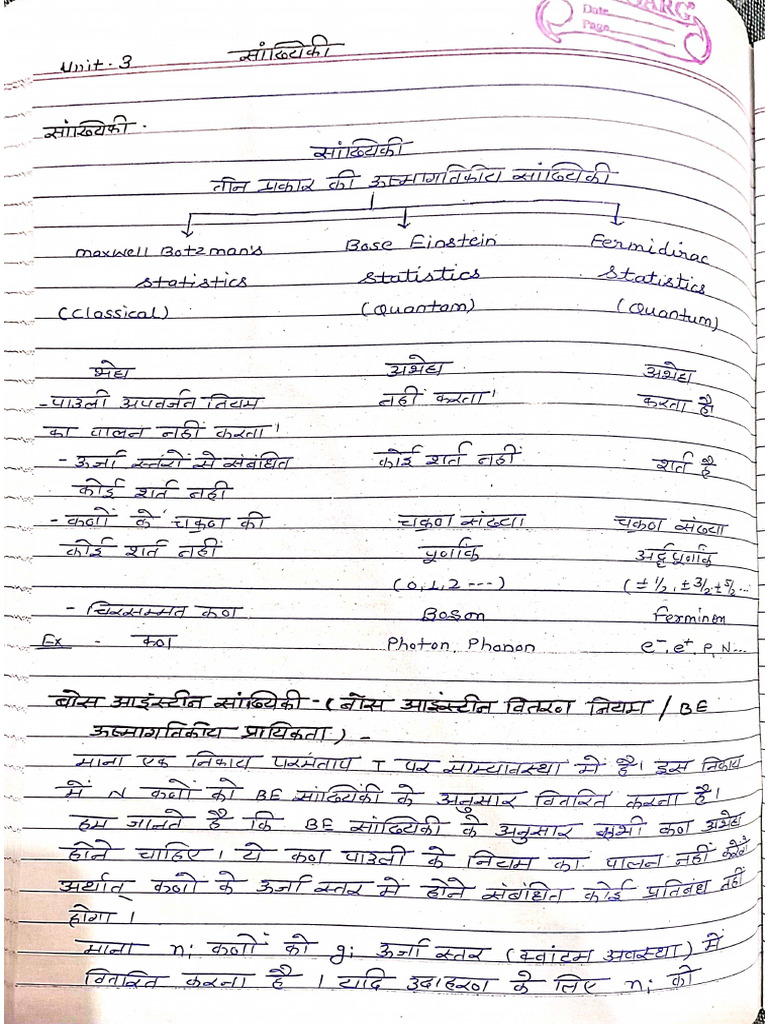 GARG
Date
Page
Unit - 3 सांख्यिकी
सांख्यिकी -
सांख्यिकी
तीन प्रकार की ऊष्मागतिकीय सांख्यिकी
maxwell Botzman's Bose Einstein Fermidirac
statistics statistics statistics
(Classical) (Quantam) (Quantum)
भेद्य अभेद्य अभेद्य
- पाउली अपवर्जन नियम नहीं करता। करता है
का पालन नहीं करता।
- ऊर्जा स्तरों से संबंधित कोई शर्त नहीं शर्त है
कोई शर्त नही
- कणों के चक्रण की चक्रण संख्या चक्रण संख्या
कोई शर्त नहीं पूर्णांक अर्द्धपूर्णांक
(0,1,2 ---) (±1/2, ±3/2, ±5/2...
- चिरसम्मत कण Boson Ferminon
Ex - कण Photon, Phonon e⁻, e⁺, P, N...
बोस आइंस्टीन सांख्यिकी - (बोस आइंस्टीन वितरण नियम / BE
ऊष्मागतिकीय प्रायिकता) -
माना एक निकाय परमताप T पर साम्यावस्था में है। इस निकाय
में N कणों को BE सांख्यिकी के अनुसार वितरित करना है।
हम जानते है कि BE सांख्यिकी के अनुसार सभी कण अभेद्य
होने चाहिए। ये कण पाउली के नियम का पालन नहीं करेंगे
अर्थात् कणों के ऊर्जा स्तर में होने संबंधित कोई प्रतिबंध नहीं
होगा।
माना nᵢ कणों को gᵢ ऊर्जा स्तर (क्वांटम अवस्था) में
वितरित करना है। यदि उदाहरण के लिए nᵢ को